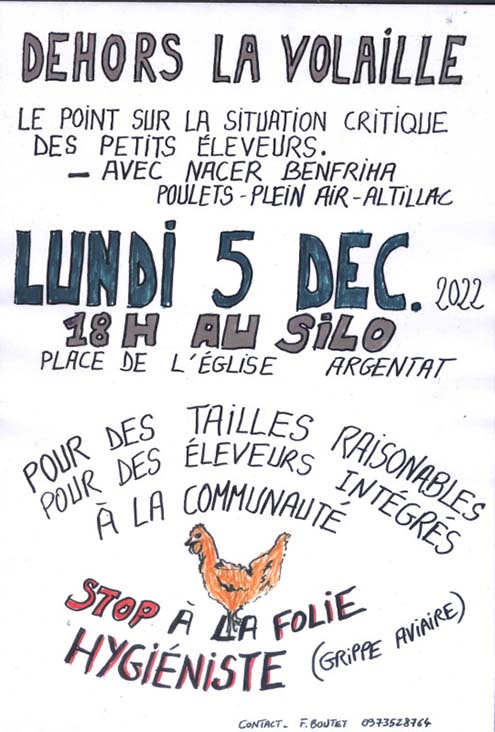 DEHORS LA VOLAILLE
LE POINT SUR LA SITUATION CRITIQUE
DES PETITS ÉLEVEURS.
– AVEC NACER BENFRIHA
POULETS - PLEIN AIR - ALTILLAC
LUNDI 5 DEC. 2022
18H AU SILO
PLACE DE L'ÉGLISE ARGENTAT
POUR DES TAILLES RAISONABLES
POUR DES ÉLEVEURS INTÉGRÉS
À LA COMMUNAUTÉ
STOP À LA FOLIE
HYGIÉNISTE (GRIPPE AVIAIRE)
CONTACT - F. BOUTET 0973528764